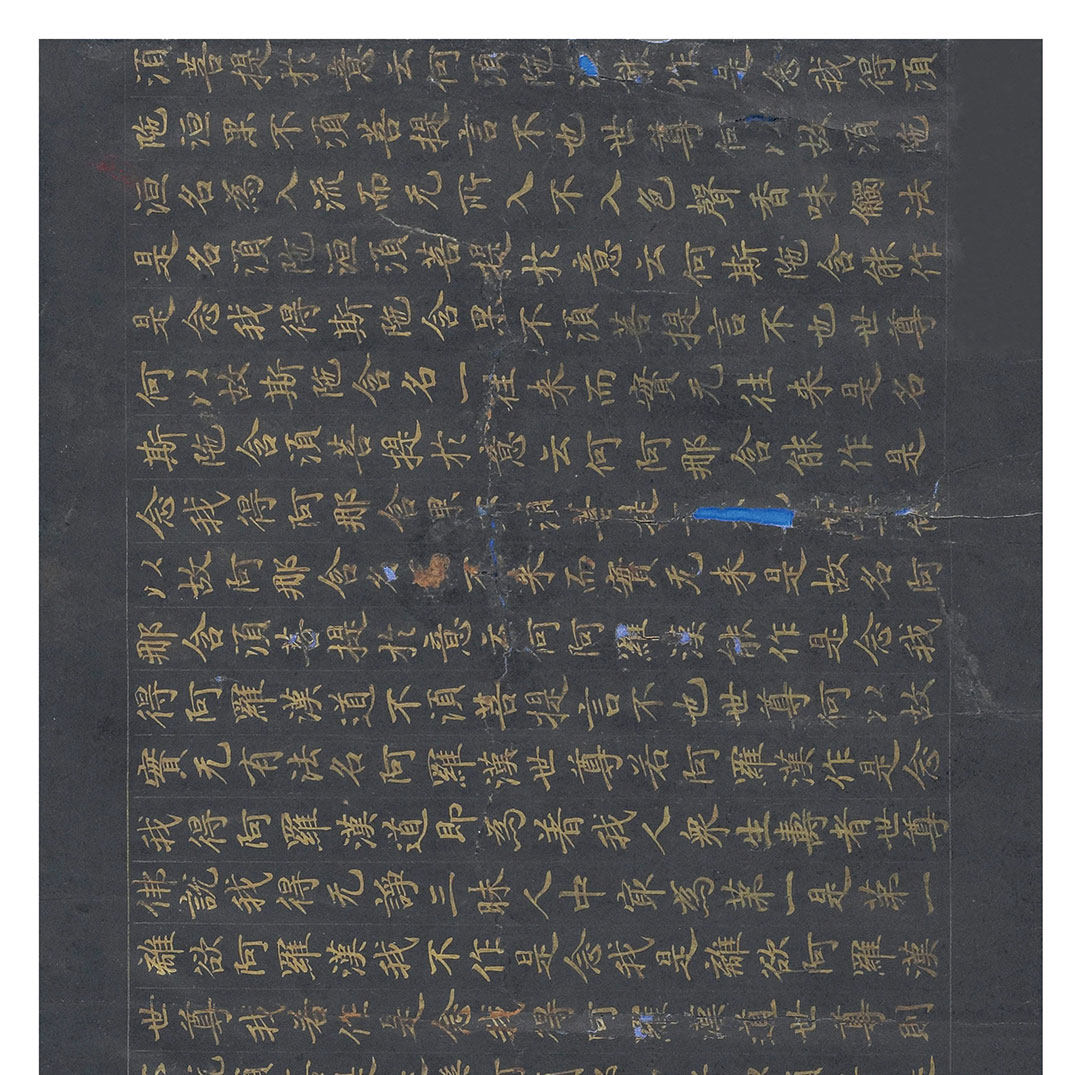 須菩提於意云何須陁洹能作是念我得須
陁洹果不須菩提言不也世尊何以故須陁
洹名為入流而无所入不入色聲香味觸法
是名須陁洹須菩提於意云何斯陁含能作
是念我得斯陁含果不須菩提言不也世尊
何以故斯陁含名一往来而實无往来是名
斯陁含須菩提於意云何阿那含能作是
念我得阿那含果不須菩提
以故阿那含名不来而實无来是故名阿
那含須菩提於意云何阿羅漢能作是念我
得阿羅漢道不須菩提言不也世尊何以故
實无有法名阿羅漢世尊若阿羅漢作是念
我得阿羅漢道即為着我人衆生壽者世尊
佛說我得无諍三昧人中冣為第一是第一
離欲阿羅漢我不作是念我是離欲阿羅漢
世尊我若作是念我得阿羅漢道世尊則